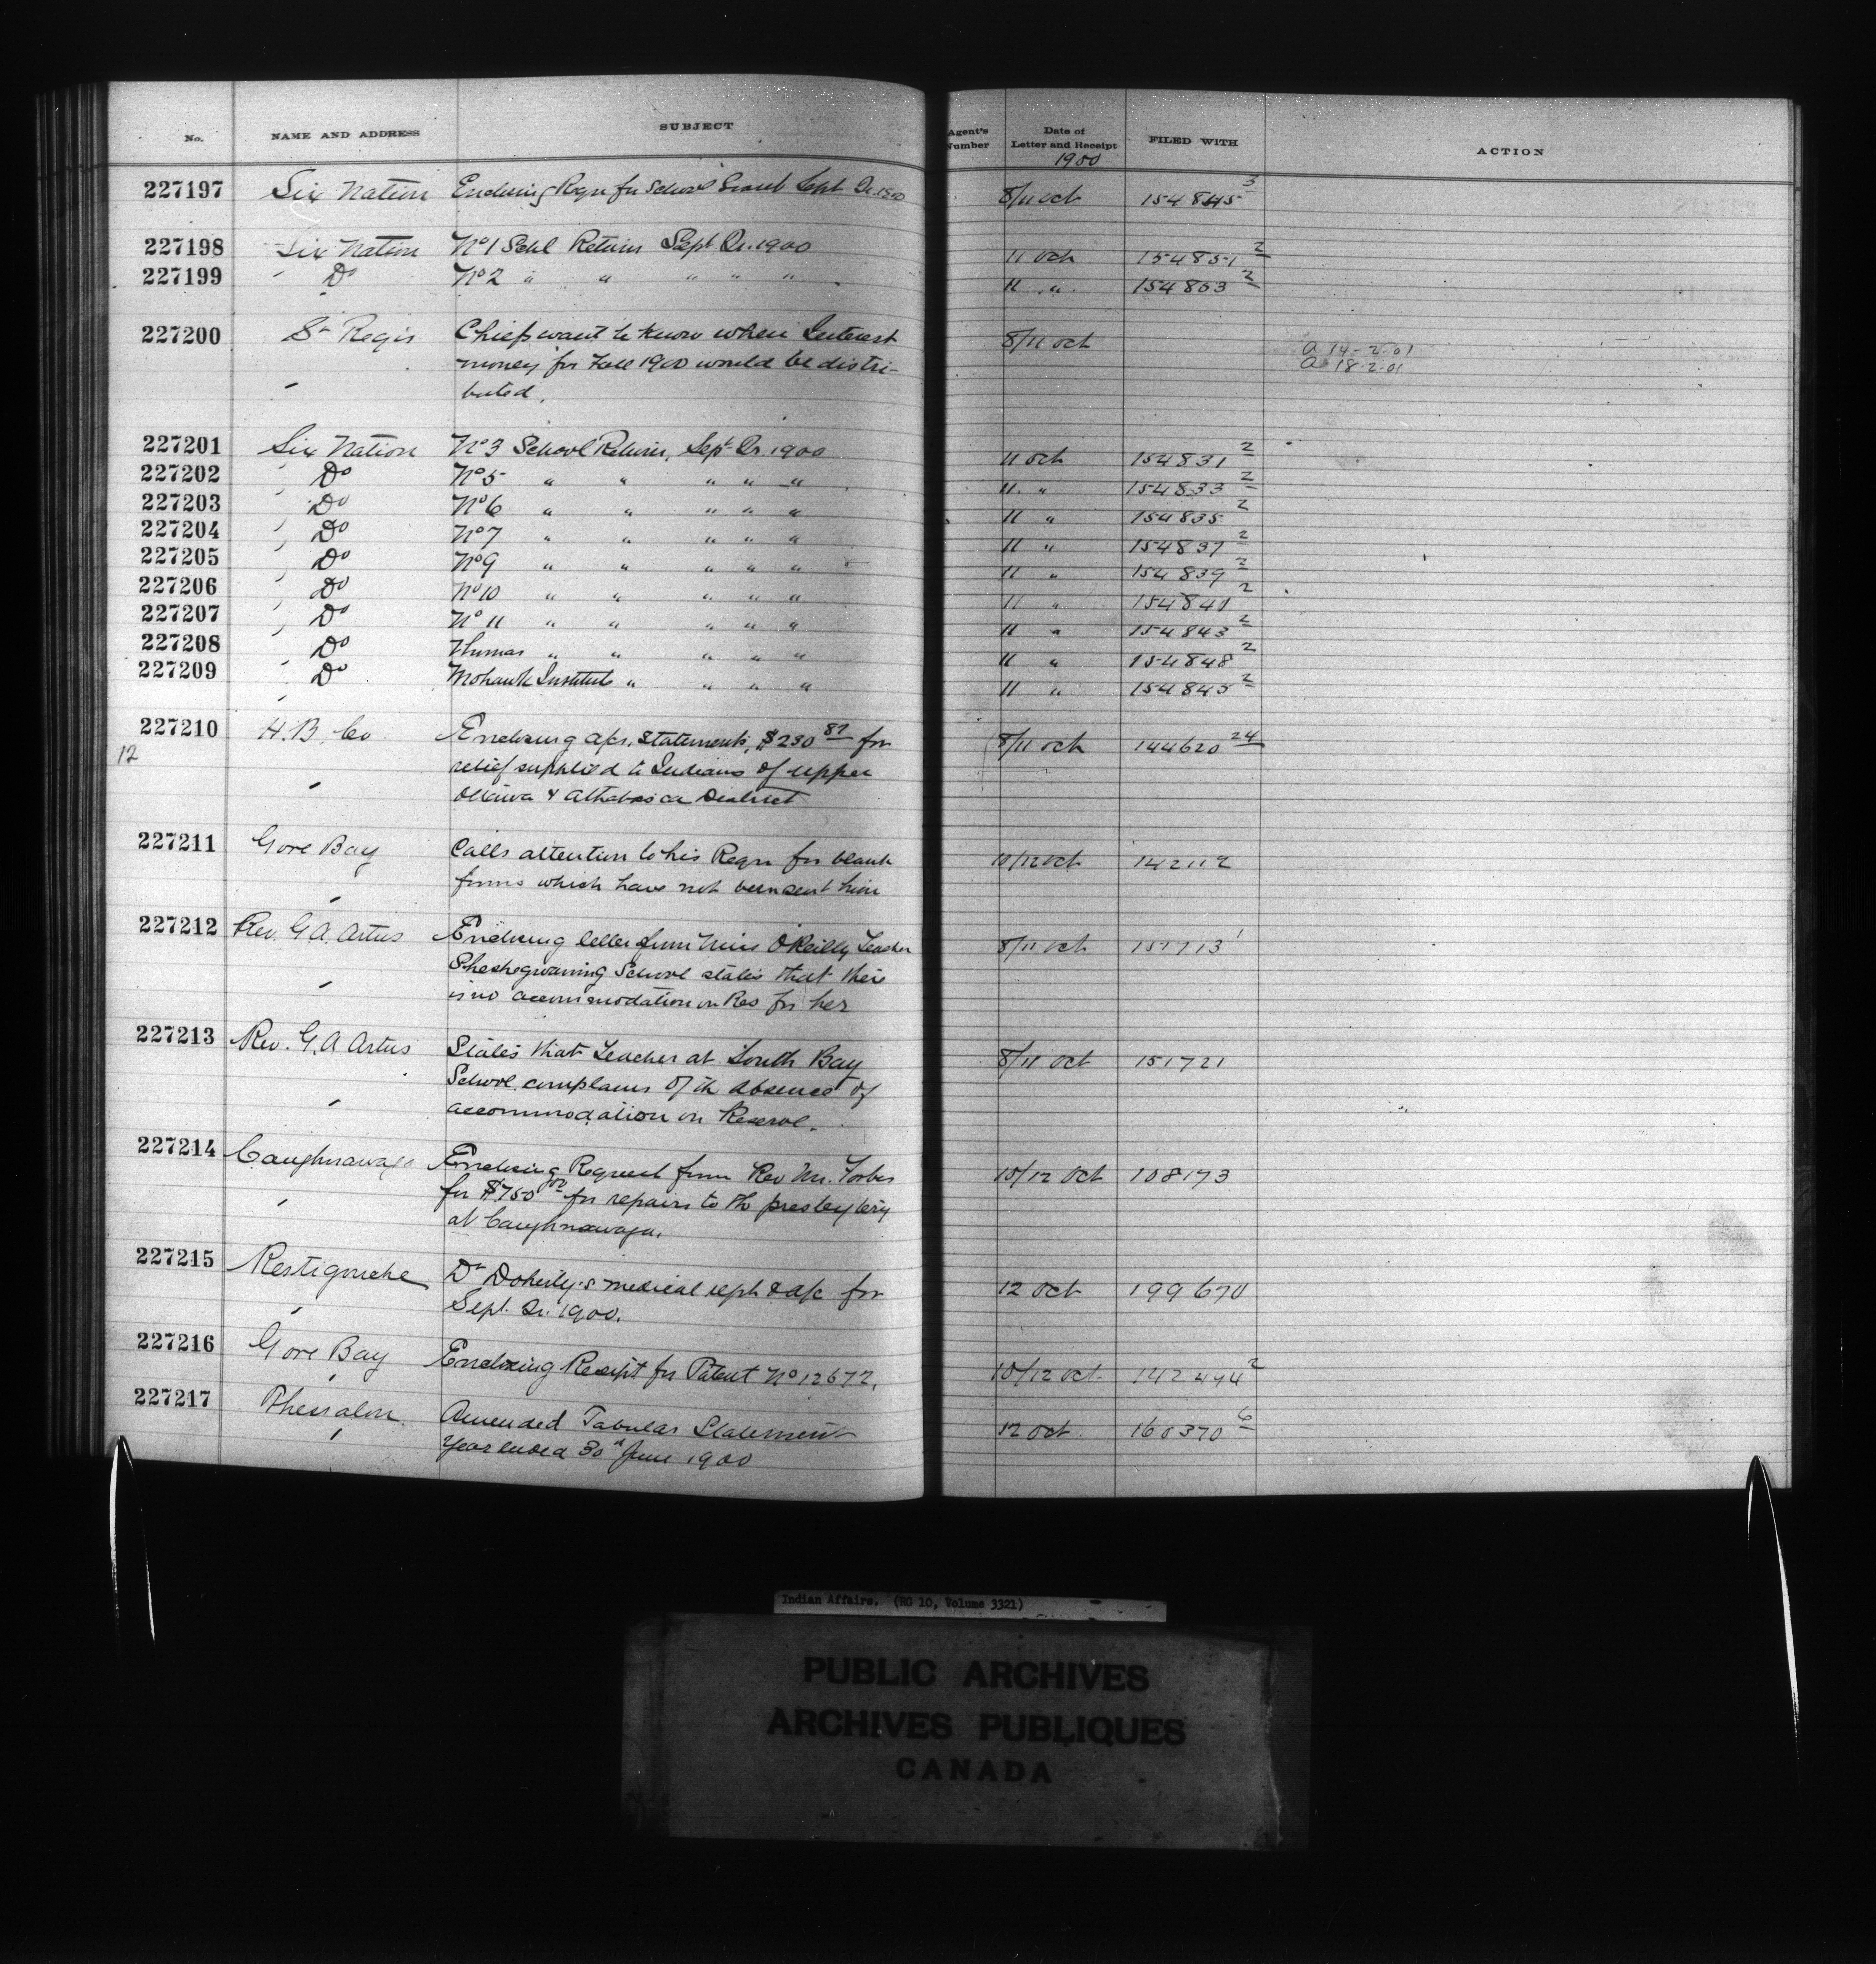 No. NAME AND ADDRESS SUBJECT Agent's Number Date of Letter and Receipt FILED WITH ACTION
1900
227197 Six Nation Enclosing Reqn for School Grant Sept Qr. 1900 8/11 Oct 154845 3
227198 Six Nation No 1 Schl Return Sept Qr. 1900 11 Oct 154851 2
227199 Do No 2 " " " " " 11 " 154853 2
227200 St Regis Chiefs want to know when Interest 8/11 Oct A 14-2-01
money for Fall 1900 would be distri- A 18-2-01
buted.
227201 Six Nation No 3 School Return, Sept Qr. 1900 11 Oct 154831 2
227202 Do No 5 " " " " " 11 " 154833 2
227203 Do No 6 " " " " " 11 " 154835 2
227204 Do No 7 " " " " " 11 " 154837 2
227205 Do No 9 " " " " " 11 " 154839 2
227206 Do No 10 " " " " " 11 " 154841 2
227207 Do No 11 " " " " " 11 " 154843 2
227208 Do Thomas " " " " " 11 " 154848 2
227209 Do Mohawk Institute " " " " 11 " 154845 2
227210 H.B. Co Enclosing a/cs, statements, $230 87 for 8/11 Oct 144620 24
12 relief supplied to Indians of upper
Ottawa & Athabasca District
227211 Gore Bay Calls attention to his Reqn for blank 10/12 Oct 142112
forms which have not been sent him
227212 Rev. G.A. Artus Enclosing letter from Miss O'Reilly Teacher 8/11 Oct 151713 1
Sheshegwaning School states that there
is no accommodation on Res for her
227213 Rev. G.A Artus States that Teacher at South Bay 8/11 Oct 151721
School complains of the absence of
accommodation on Reserve.
227214 Caughnawaga Enclosing Request from Rev Mr. Forbes 10/12 Oct 108173
for $750 00 for repairs to the presbytery
at Caughnawaga.
227215 Restigouche Dr Doherty's medical rept & a/c for 12 Oct 199670
Sept. Qr. 1900.
227216 Gore Bay Enclosing Receipt for Patent No 12672. 10/12 Oct 142494 2
227217 Thessalon Amended Tabular Statement 12 Oct 160370 6
Year ended 30th June 1900
Indian Affairs. (RG 10, Volume 3321)
PUBLIC ARCHIVES
ARCHIVES PUBLIQUES
CANADA